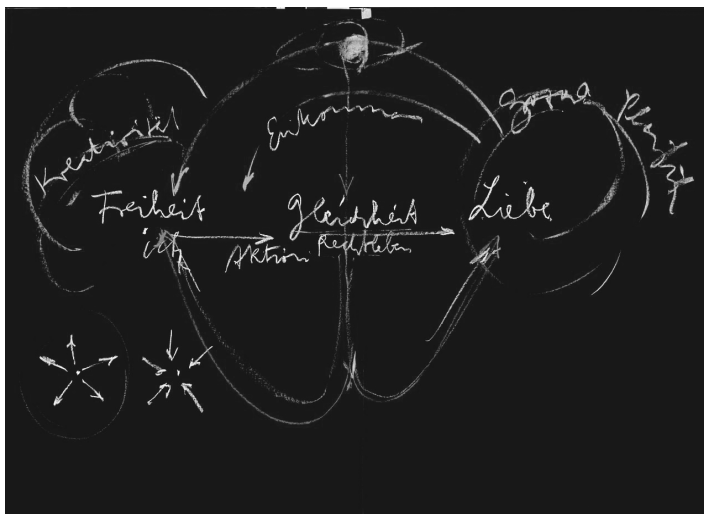 Kreativität
Einkommen
Sozial
Freiheit
Gleichheit
Liebe
ich
Aktion
Rechtsleben